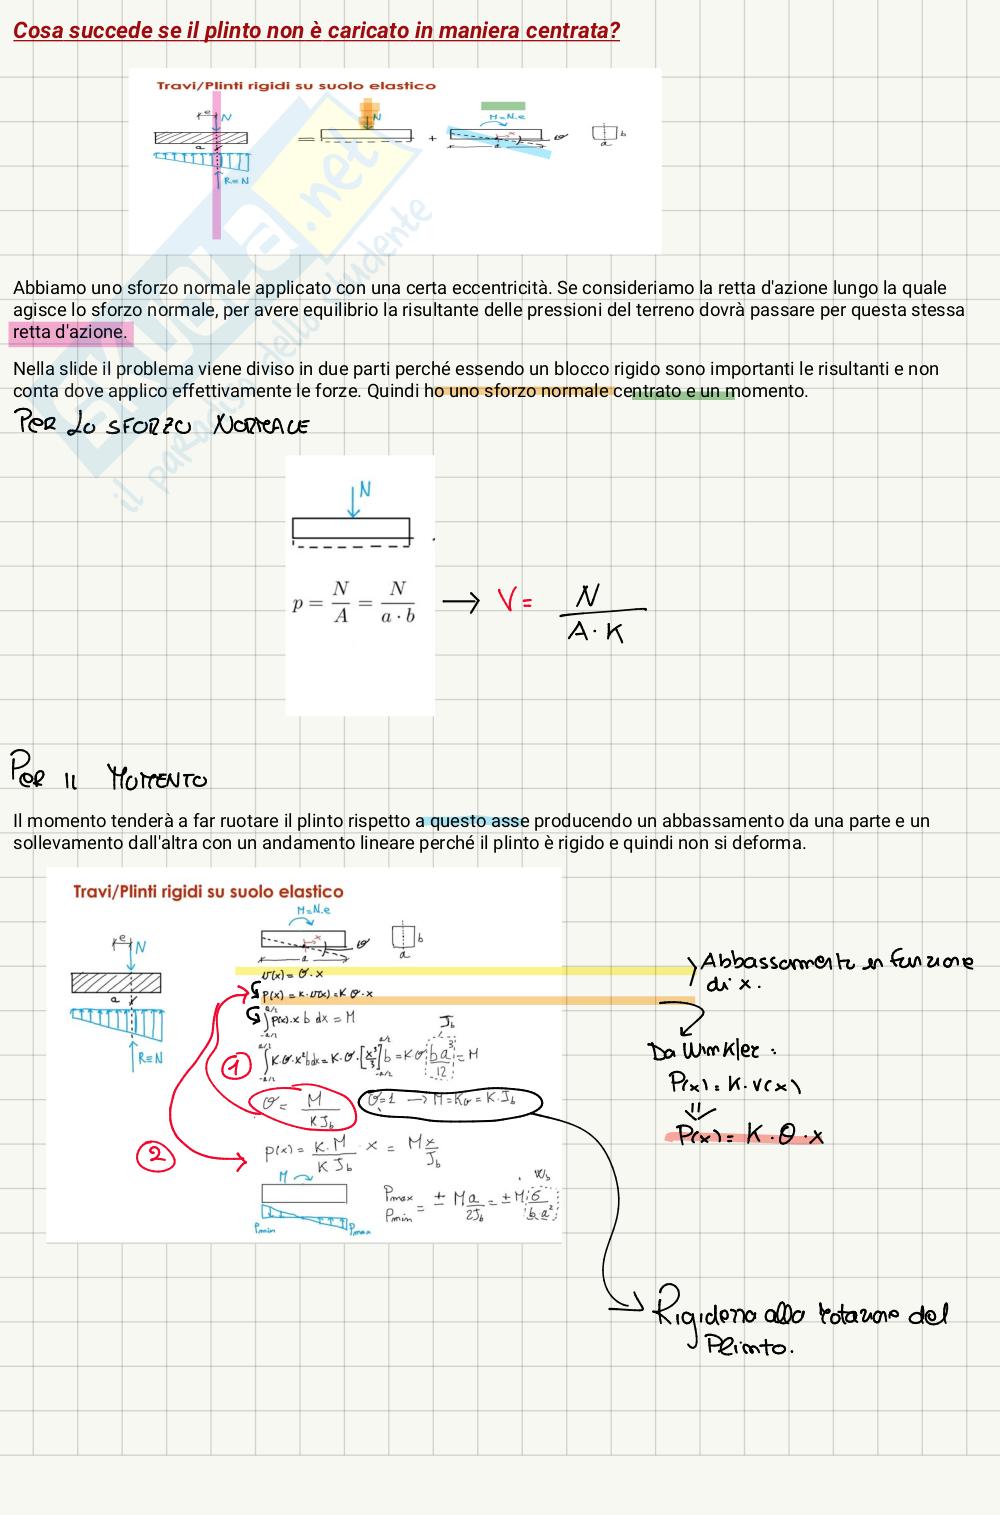 Cosa succede se il plinto non è caricato in maniera centrata?
Travi/Plinti rigidi su suolo elastico
e N
a
R=N
=
N
+
M=N.e
x
a
b
a
Abbiamo uno sforzo normale applicato con una certa eccentricità. Se consideriamo la retta d'azione lungo la quale
agisce lo sforzo normale, per avere equilibrio la risultante delle pressioni del terreno dovrà passare per questa stessa
retta d'azione.
Nella slide il problema viene diviso in due parti perché essendo un blocco rigido sono importanti le risultanti e non
conta dove applico effettivamente le forze. Quindi ho uno sforzo normale centrato e un momento.
PER LO SFORZO NORMALE
N
p = N/A = N/(a · b) → V = N/(A·K)
PER IL MOMENTO
Il momento tenderà a far ruotare il plinto rispetto a questo asse producendo un abbassamento da una parte e un
sollevamento dall'altra con un andamento lineare perché il plinto è rigido e quindi non si deforma.
Travi/Plinti rigidi su suolo elastico
M=N.e
x
a
b
a
e N
a
R=N
v(x) = θ·x
Abbassamento in funzione
di x.
p(x) = K·v(x) = K θ·x
∫ p(x)·x b dx = M
Da Winkler:
P(x) = K·v(x)
P(x) = K·θ·x
J_b
1
∫ K·θ·x² b dx = K·θ·[x³/3] b = K θ b a³/12 = M
θ = M/(K J_b)
θ=1 → M = K_θ = K·J_b
2
p(x) = K·M/(K J_b) · x = M x/J_b
M
Pmin
Pmax
W_b
Pmax
Pmin
= ± M a/(2J_b) = ± M 6/(b·a²)
Rigidezza alla rotazione del
Plinto.
SKUOLA.net
il paradiso dello studente